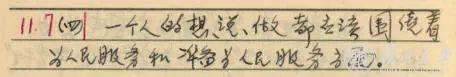 11.7(四) 一个人的想、说、做都应该围绕着
为人民服务和准备为人民服务方面。